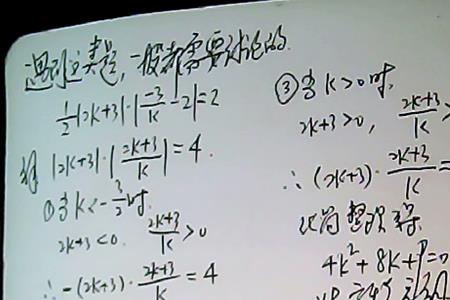 遇到这类题，一般都需要讨论的.
½|2k+3|·|-3/k -2|=2
得 |2k+3|·|2k+3/k|=4.
①当k<-3/2时.
2k+3<0. 2k+3/k>0
∴-(2k+3)·2k+3/k=4
③当k>0时.
2k+3>0, 2k+3/k>
∴(2k+3)·2k+3/k=
4k²+8k+9=0